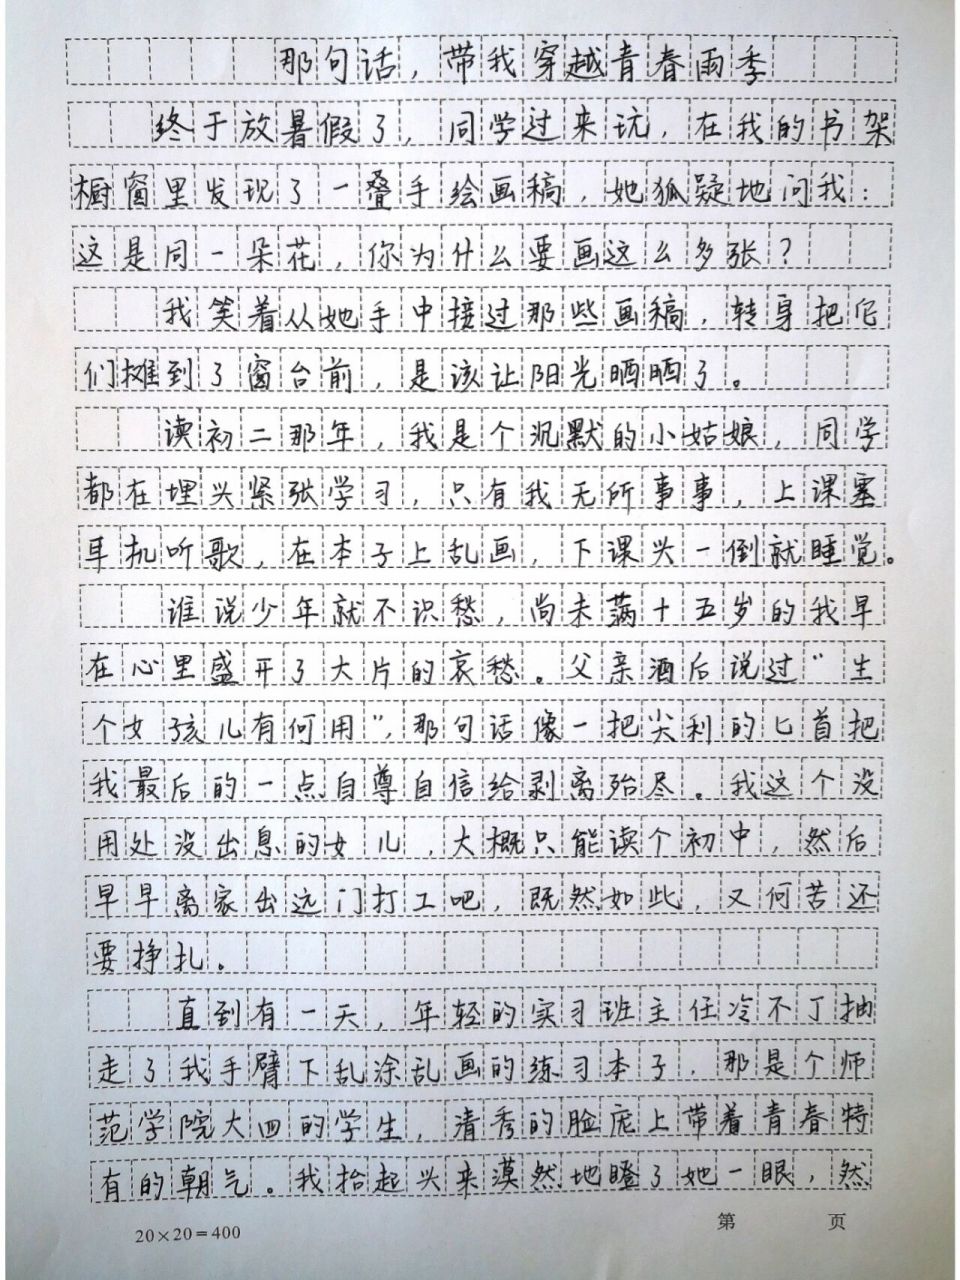 那句话，带我穿越青春雨季
终于放暑假了，同学过来玩，在我的书架
橱窗里发现了一叠手绘画稿，她狐疑地问我：
这是同一朵花，你为什么要画这么多张？
我笑着从她手中接过那些画稿，转身把它
们摊到了窗台前，是该让阳光晒晒了。
读初二那年，我是个沉默的小姑娘，同学
都在埋头紧张学习，只有我无所事事，上课塞
耳机听歌，在本子上乱画，下课头一倒就睡觉。
谁说少年就不识愁，尚未满十五岁的我早
在心里盛开了大片的哀愁。父亲酒后说过“生
个女孩儿有何用”，那句话像一把尖利的匕首把
我最后的一点自尊自信给剥离殆尽。我这个没
用处没出息的女儿，大概只能读个初中，然后
早早离家出远门打工吧，既然如此，又何苦还
要挣扎。
直到有一天，年轻的实习班主任冷不丁抽
走了我手臂下乱涂乱画的练习本子，那是个师
范学院大四的学生，清秀的脸庞上带着青春特
有的朝气。我抬起头来漠然地瞪了她一眼，然
20×20=400
第 页